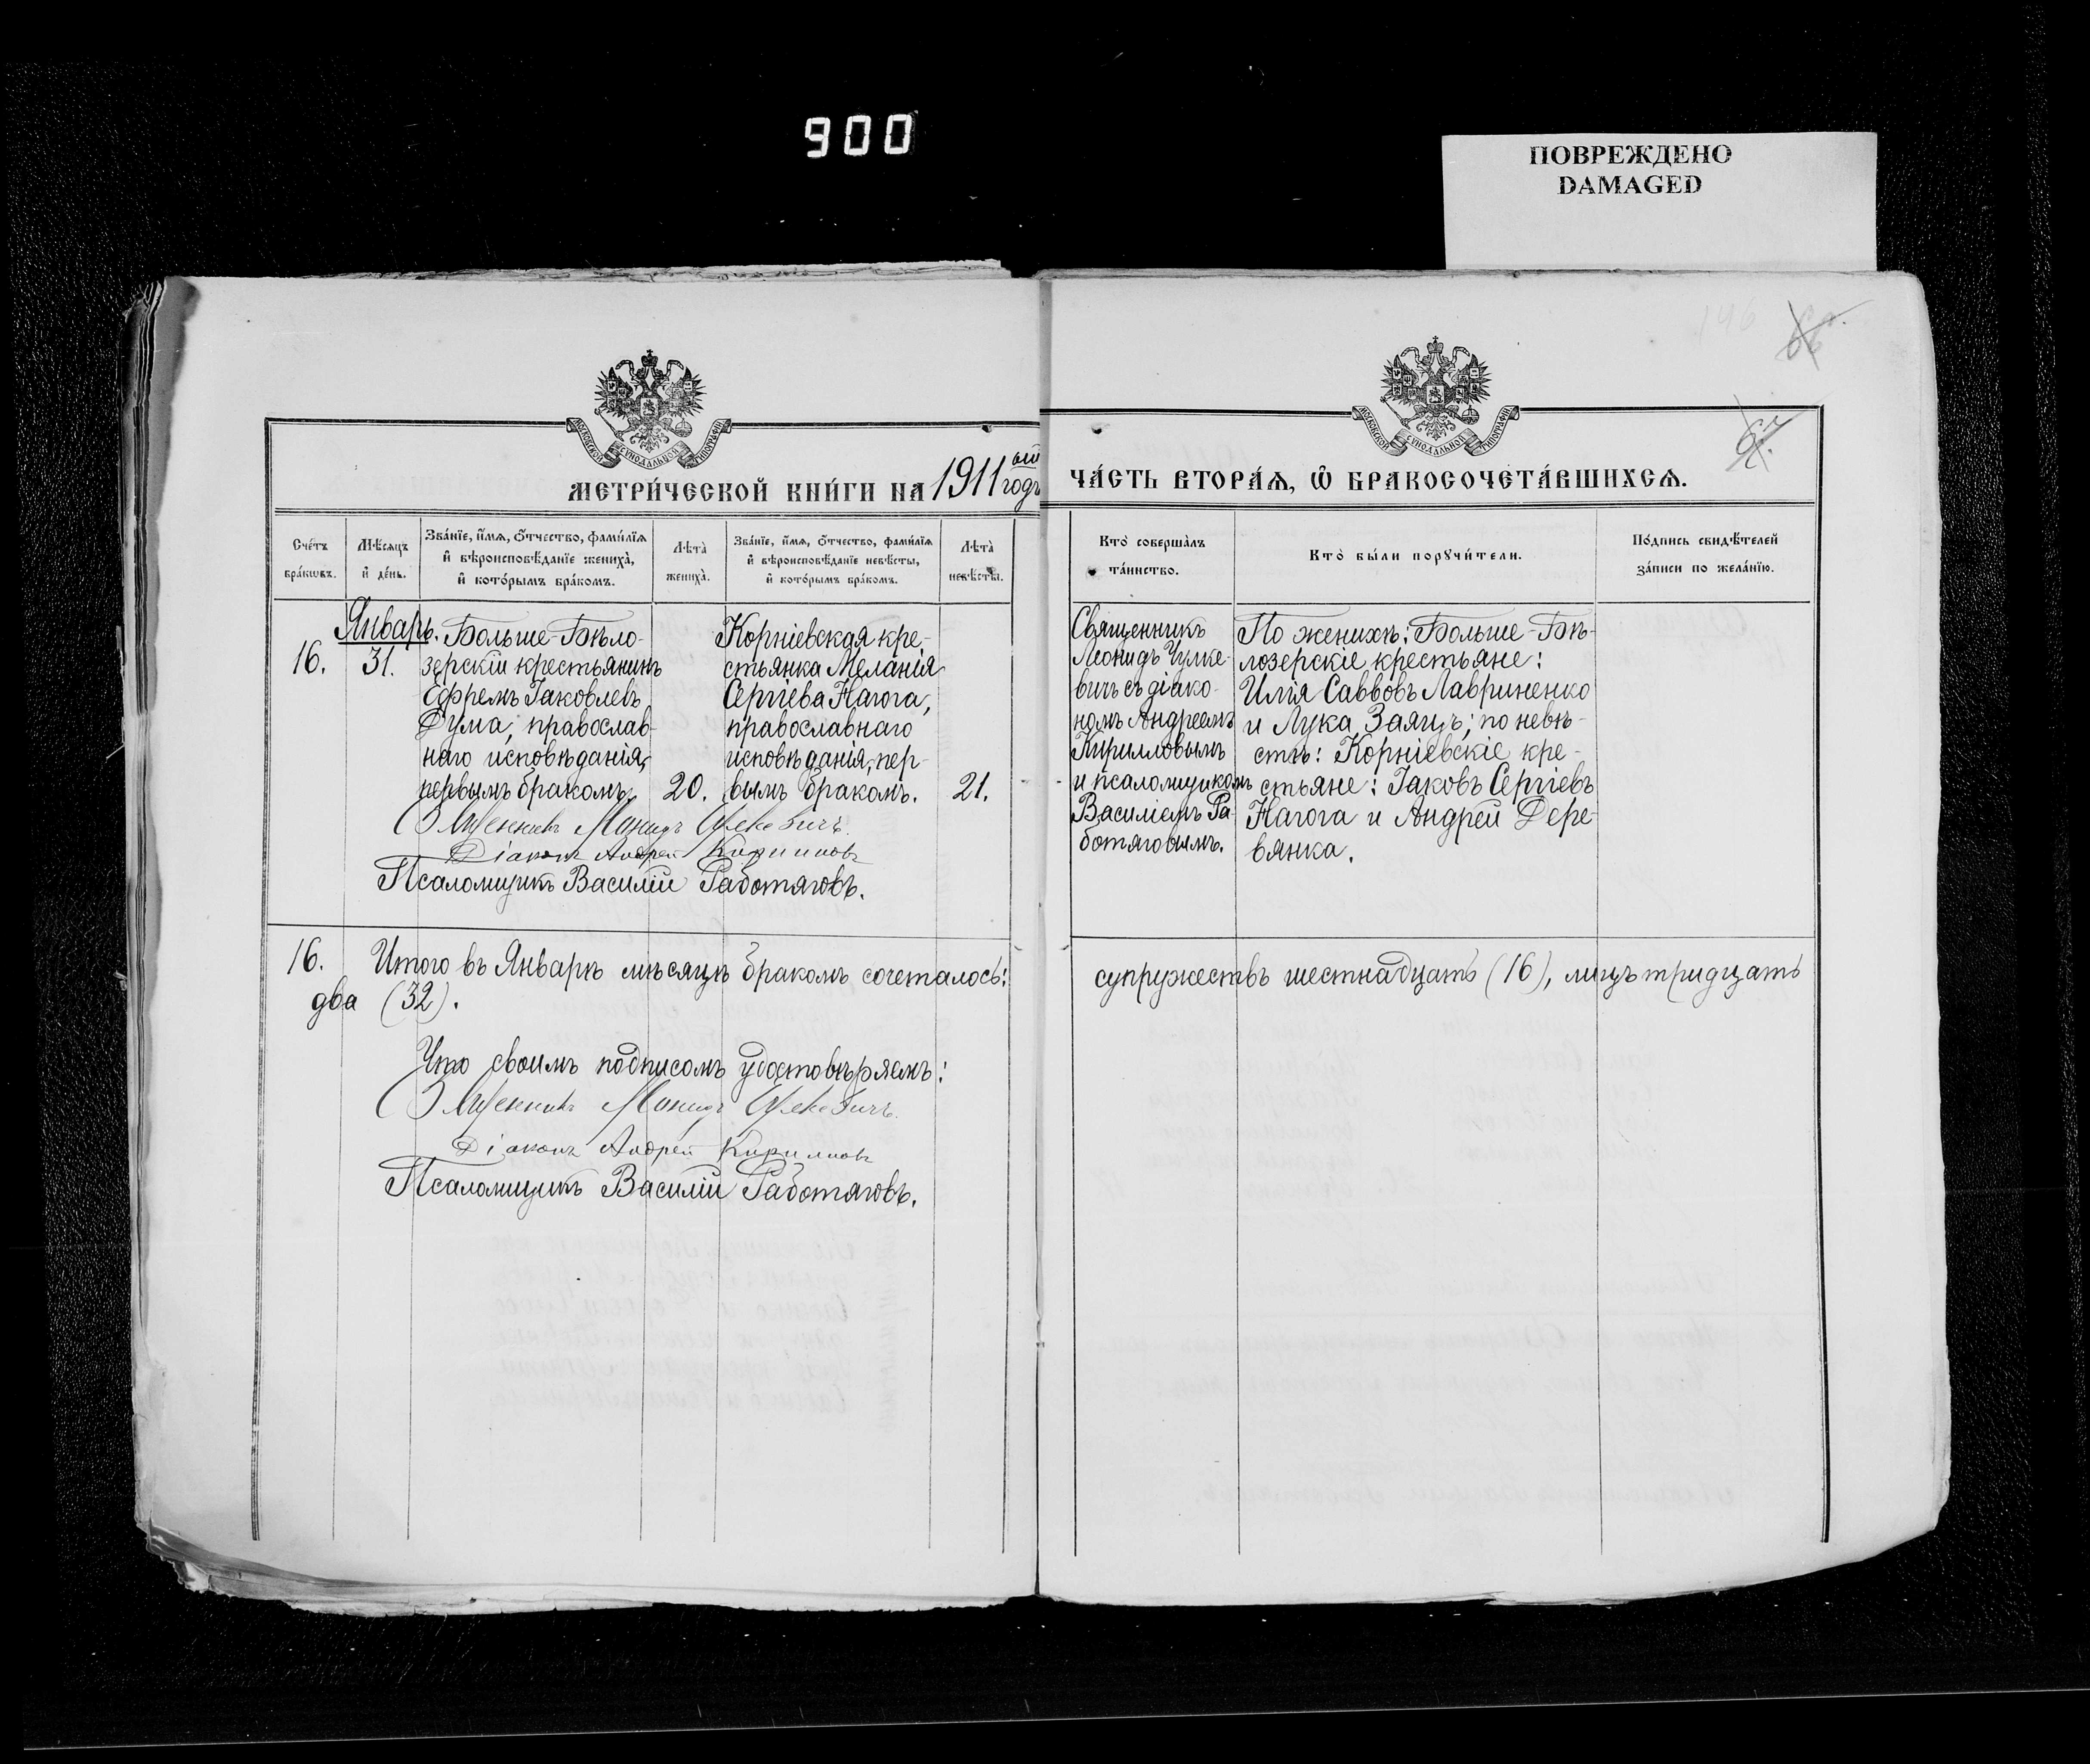 900
ПОВРЕЖДЕНО
DAMAGED
146
МЕТРИ́ЧЕСКОЙ КНИ́ГИ НА 1911ый годъ
ЧА́СТЬ ВТОРА́Ѧ, Ѽ БРАКОСОЧЕТА́ВШИХСѦ.
МОСКОВСКОЙ СѴНОДАЛЬНОЙ ТИПОГРАФІИ
МОСКОВСКОЙ СѴНОДАЛЬНОЙ ТИПОГРАФІИ
Сче́тъ
бра́кωвъ.
Мѣ́сяцъ
и҆ де́нь.
Зва́нїе, и҆́мѧ, ѻ҆́тчество, фами́лїѧ
и҆ вѣроисповѣ́данїе жениха̀,
и҆ кото́рымъ бра́комъ.
Лѣ́та̀
жениха̀.
Зва́нїе, и҆́мѧ, ѻ҆́тчество, фами́лїѧ
и҆ вѣроисповѣ́данїе невѣ́сты,
и҆ кото́рымъ бра́комъ.
Лѣ́та̀
невѣ́сты.
Кто̀ соверша́лъ
та́инство.
Кто̀ бы́ли порꙋчи́тели.
По́дпись свидѣ́телей
за́писи по жела́нїю.
Январь.
16.
31.
Больше-Бѣло-
зерскій крестьянинъ
Ефремъ Іаковлевъ
Дума, православ-
наго исповѣданія,
первымъ бракомъ.
20.
Корніевская кре-
стьянка Меланія
Сергіева Нагога,
православнаго
исповѣданія, пер-
вымъ бракомъ.
21.
Священникъ
Леонидъ Чулке-
вичъ съ діако-
номъ Андреемъ
Кирилловымъ
и псаломщикомъ
Василіемъ Ра-
ботяговымъ.
По женихѣ: Больше-Бѣ-
лозерскіе крестьяне:
Илія Саввовъ Лавриненко
и Лука Заяцъ; по невѣ-
стѣ: Корніевскіе кре-
стьяне: Іаковъ Сергіевъ
Нагога и Андрей Дере-
вянка.
Священникъ Леонидъ Чулкевичъ
Діаконъ Андрей Кирилловъ
Псаломщикъ Василій Работяговъ.
16. Итого въ Январѣ мѣсяцѣ бракомъ сочеталось: супружествъ шестнадцать (16), лицъ тридцать
два (32).
Что своимъ подписомъ удостовѣряемъ:
Священникъ Леонидъ Чулкевичъ
Діаконъ Андрей Кирилловъ
Псаломщикъ Василій Работяговъ.